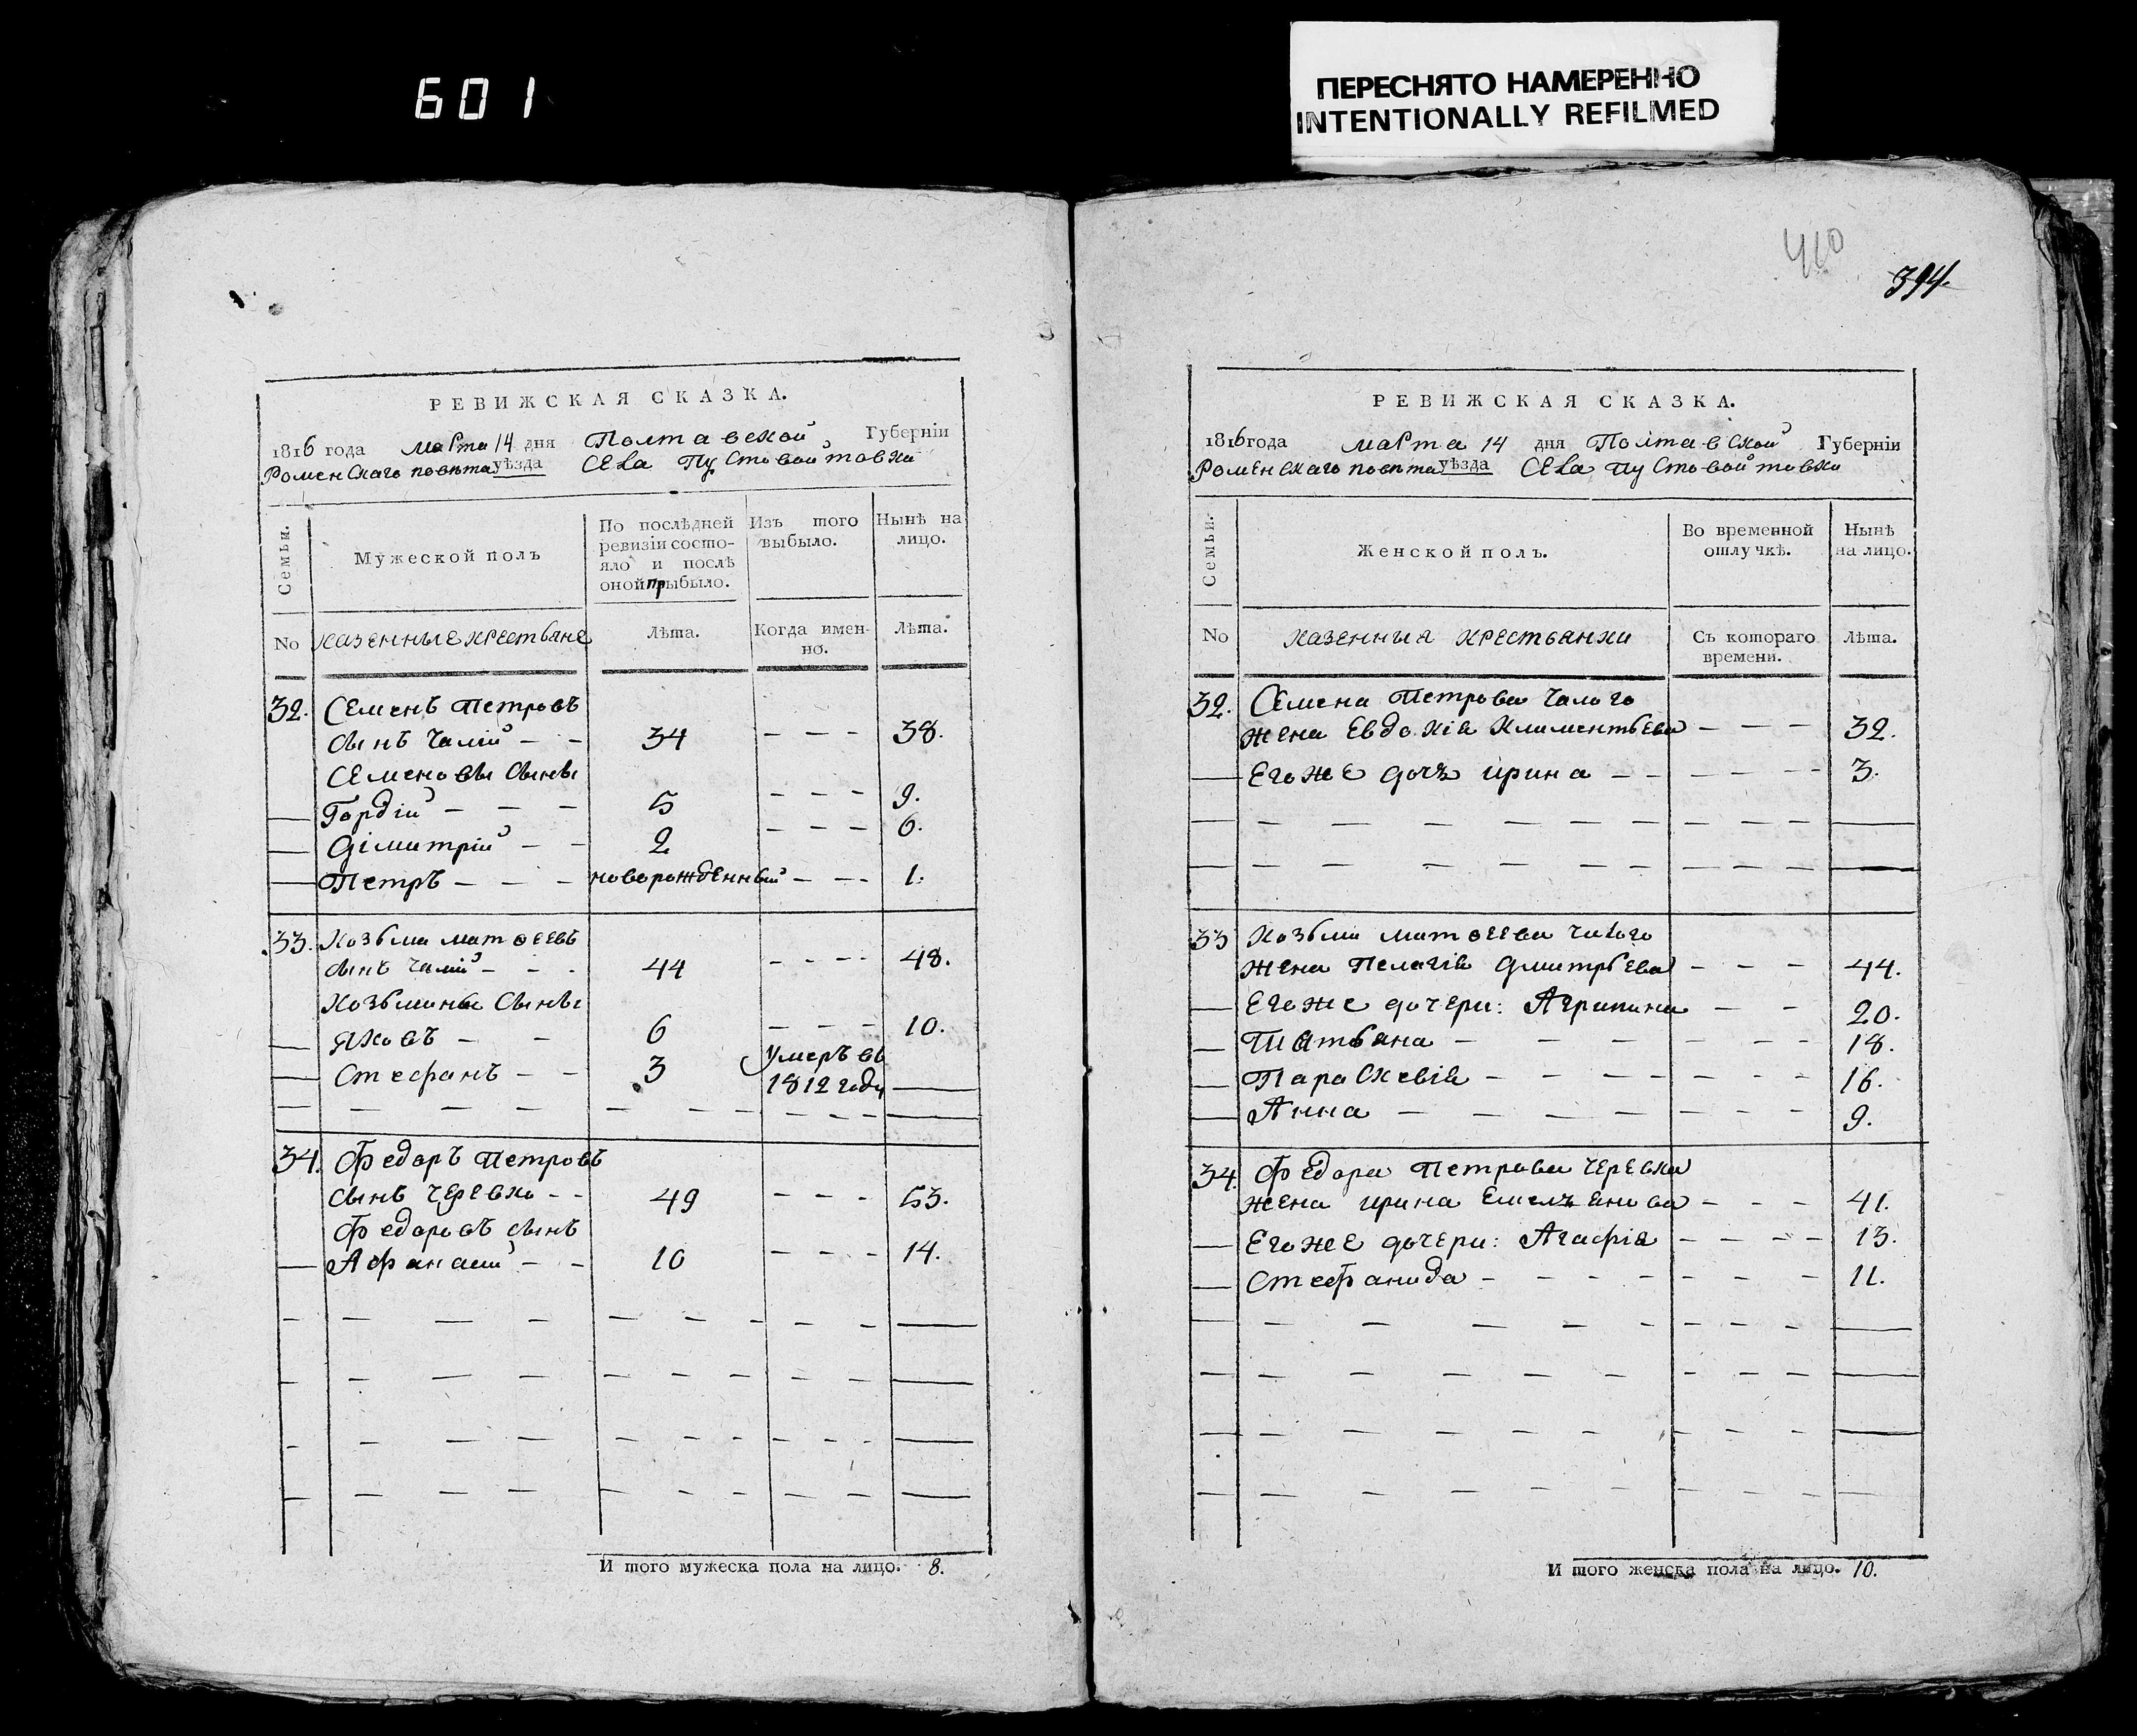 601
ПЕРЕСНЯТО НАМЕРЕННО
INTENTIONALLY REFILMED
410
394.
РЕВИЖСКАЯ СКАЗКА.
1816 года марта 14 дня Полтавской Губерніи
Роменскаго повѣта уѣзда села Пустовойтовки
Семьи.
Мужеской полъ
По послѣдней
ревизіи состо-
яло и послѣ
оной прибыло.
Изъ того
выбыло.
Нынѣ на
лицо.
No казенные крестьяне
Лѣта.
Когда имен-
но.
Лѣта.
32. Семенъ Петровъ
сынъ Чалій - - 34 - - - 38.
Семеновы сыны
Гордій - - - 5 - - - 9.
Димитрій - - 2 - - - 6.
Петръ - - - новорожденный - - - 1.
33. Козьма Матѳеевъ
сынъ Чалій - - - 44 - - - - 48.
Козьмины сыны
Яковъ - - 6 - - - 10.
Стефанъ - - 3 Умеръ въ
1812 году
34. Федоръ Петровъ
сынъ Черевко - - 49 - - - 53.
Федоровъ сынъ
Афанасій - - 10 - - - 14.
И того мужеска пола на лицо. 8.
РЕВИЖСКАЯ СКАЗКА.
1816 года марта 14 дня Полтавской Губерніи
Роменскаго повѣта уѣзда села Пустовойтовки
Семьи.
Женской полъ.
Во временной
отлучкѣ.
Нынѣ
на лицо.
No казенныя крестьянки
Съ котораго
времени.
Лѣта.
32. Семена Петрова Чалого
жена Евдокія Климентьева - - - 32.
Его же дочь Ирина - - - - - - 3.
33 Козьми Матѳеева Чалого
жена Пелагія Дмитрьева - - - 44.
Его же дочери: Агрипина - - 20.
Татьяна - - - - - - 18.
Параскевія - - - - - - - 16.
Анна - - - - - - - 9.
34. Федора Петрова Черевка
жена Ирина Емельянова - - - 41.
Его же дочери: Агафія - - - - 13.
Стефанида - - - - - - - 11.
И того женска пола на лицо. 10.